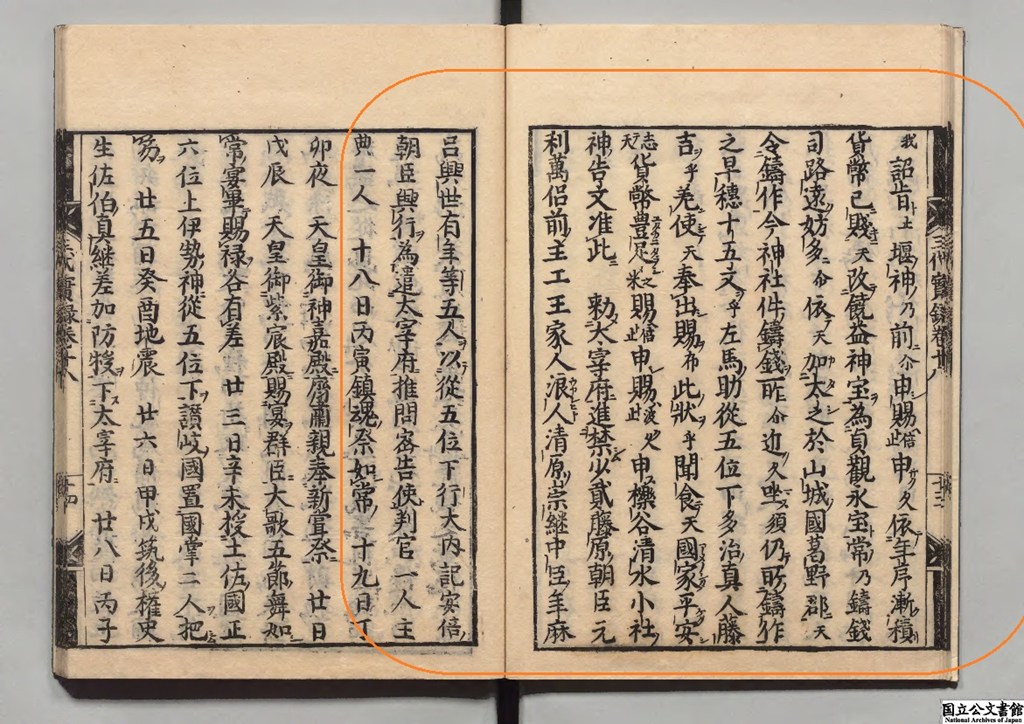 我詔旨止土堰神乃前尒申賜倍止申久久依年序漸積
貨幣已賤天改饒益神宝為貞觀永宝常乃鑄錢
司路遠妨多尒依天加太之於山城國葛野郡天
令鑄作今神社件鑄錢所尒近久坐須仍所鑄作
之早穗十五文乎左馬助從五位下多治真人藤
吉乎差使天奉出賜布此狀乎聞食天國家平安
志天貨幣豊足米賜倍止申賜波久止申櫟谷清水小社
神告文准此 勑太宰府進禁少貳藤原朝臣元
利萬侶前主工王家人浪人清原崇継中臣年麻
呂興世有年等五人以從五位下行大内記安倍
朝臣興行為遣太宰府推問密告使判官一人主
典一人 十八日丙寅鎮魂祭如常 十九日丁
卯夜 天皇御神嘉殿齋肅親奉新嘗祭 廿日
戊辰 天皇御紫宸殿賜宴群臣大歌五節舞如
常宴畢賜禄各有差 廿三日辛未授土佐國正
六位上伊勢神從五位下讃岐國置國掌二人把
笏 廿五日癸酉地震 廿六日甲戌筑後權史
生佐伯真継差加防援下太宰府 廿八日丙子
三代實録卷廿八
廿四
国立公文書館
National Archives of Japan